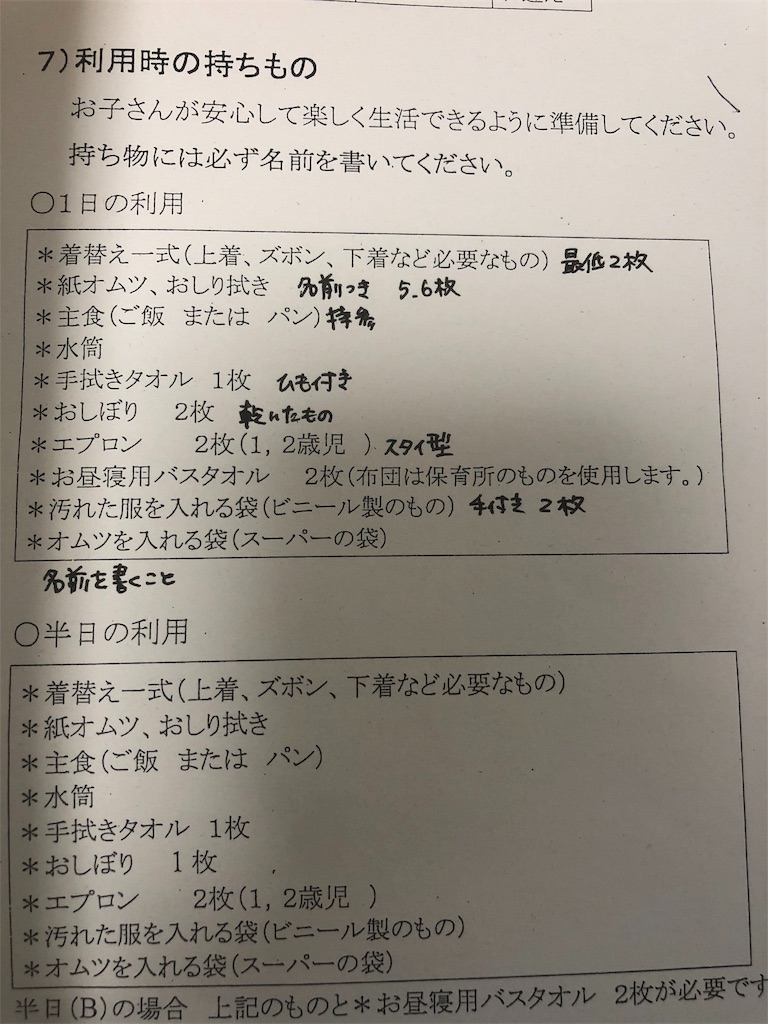 7)利用時の持ちもの
お子さんが安心して楽しく生活できるように準備してください。
持ち物には必ず名前を書いてください。
○1日の利用
＊着替え一式(上着、ズボン、下着など必要なもの) 最低2枚
＊紙オムツ、おしり拭き 名前つき 5.6枚
＊主食(ご飯 または パン)持参
＊水筒
＊手拭きタオル 1枚 ひも付き
＊おしぼり 2枚 乾いたもの
＊エプロン 2枚(1, 2歳児 ) スタイ型
＊お昼寝用バスタオル 2枚(布団は保育所のものを使用します。)
＊汚れた服を入れる袋(ビニール製のもの) 手付き 2枚
＊オムツを入れる袋(スーパーの袋)
名前を書くこと
○半日の利用
＊着替え一式(上着、ズボン、下着など必要なもの)
＊紙オムツ、おしり拭き
＊主食(ご飯 または パン)
＊水筒
＊手拭きタオル 1枚
＊おしぼり 1枚
＊エプロン 2枚(1, 2歳児 )
＊汚れた服を入れる袋(ビニール製のもの)
＊オムツを入れる袋(スーパーの袋)
半日(B)の場合 上記のものと＊お昼寝用バスタオル 2枚が必要です